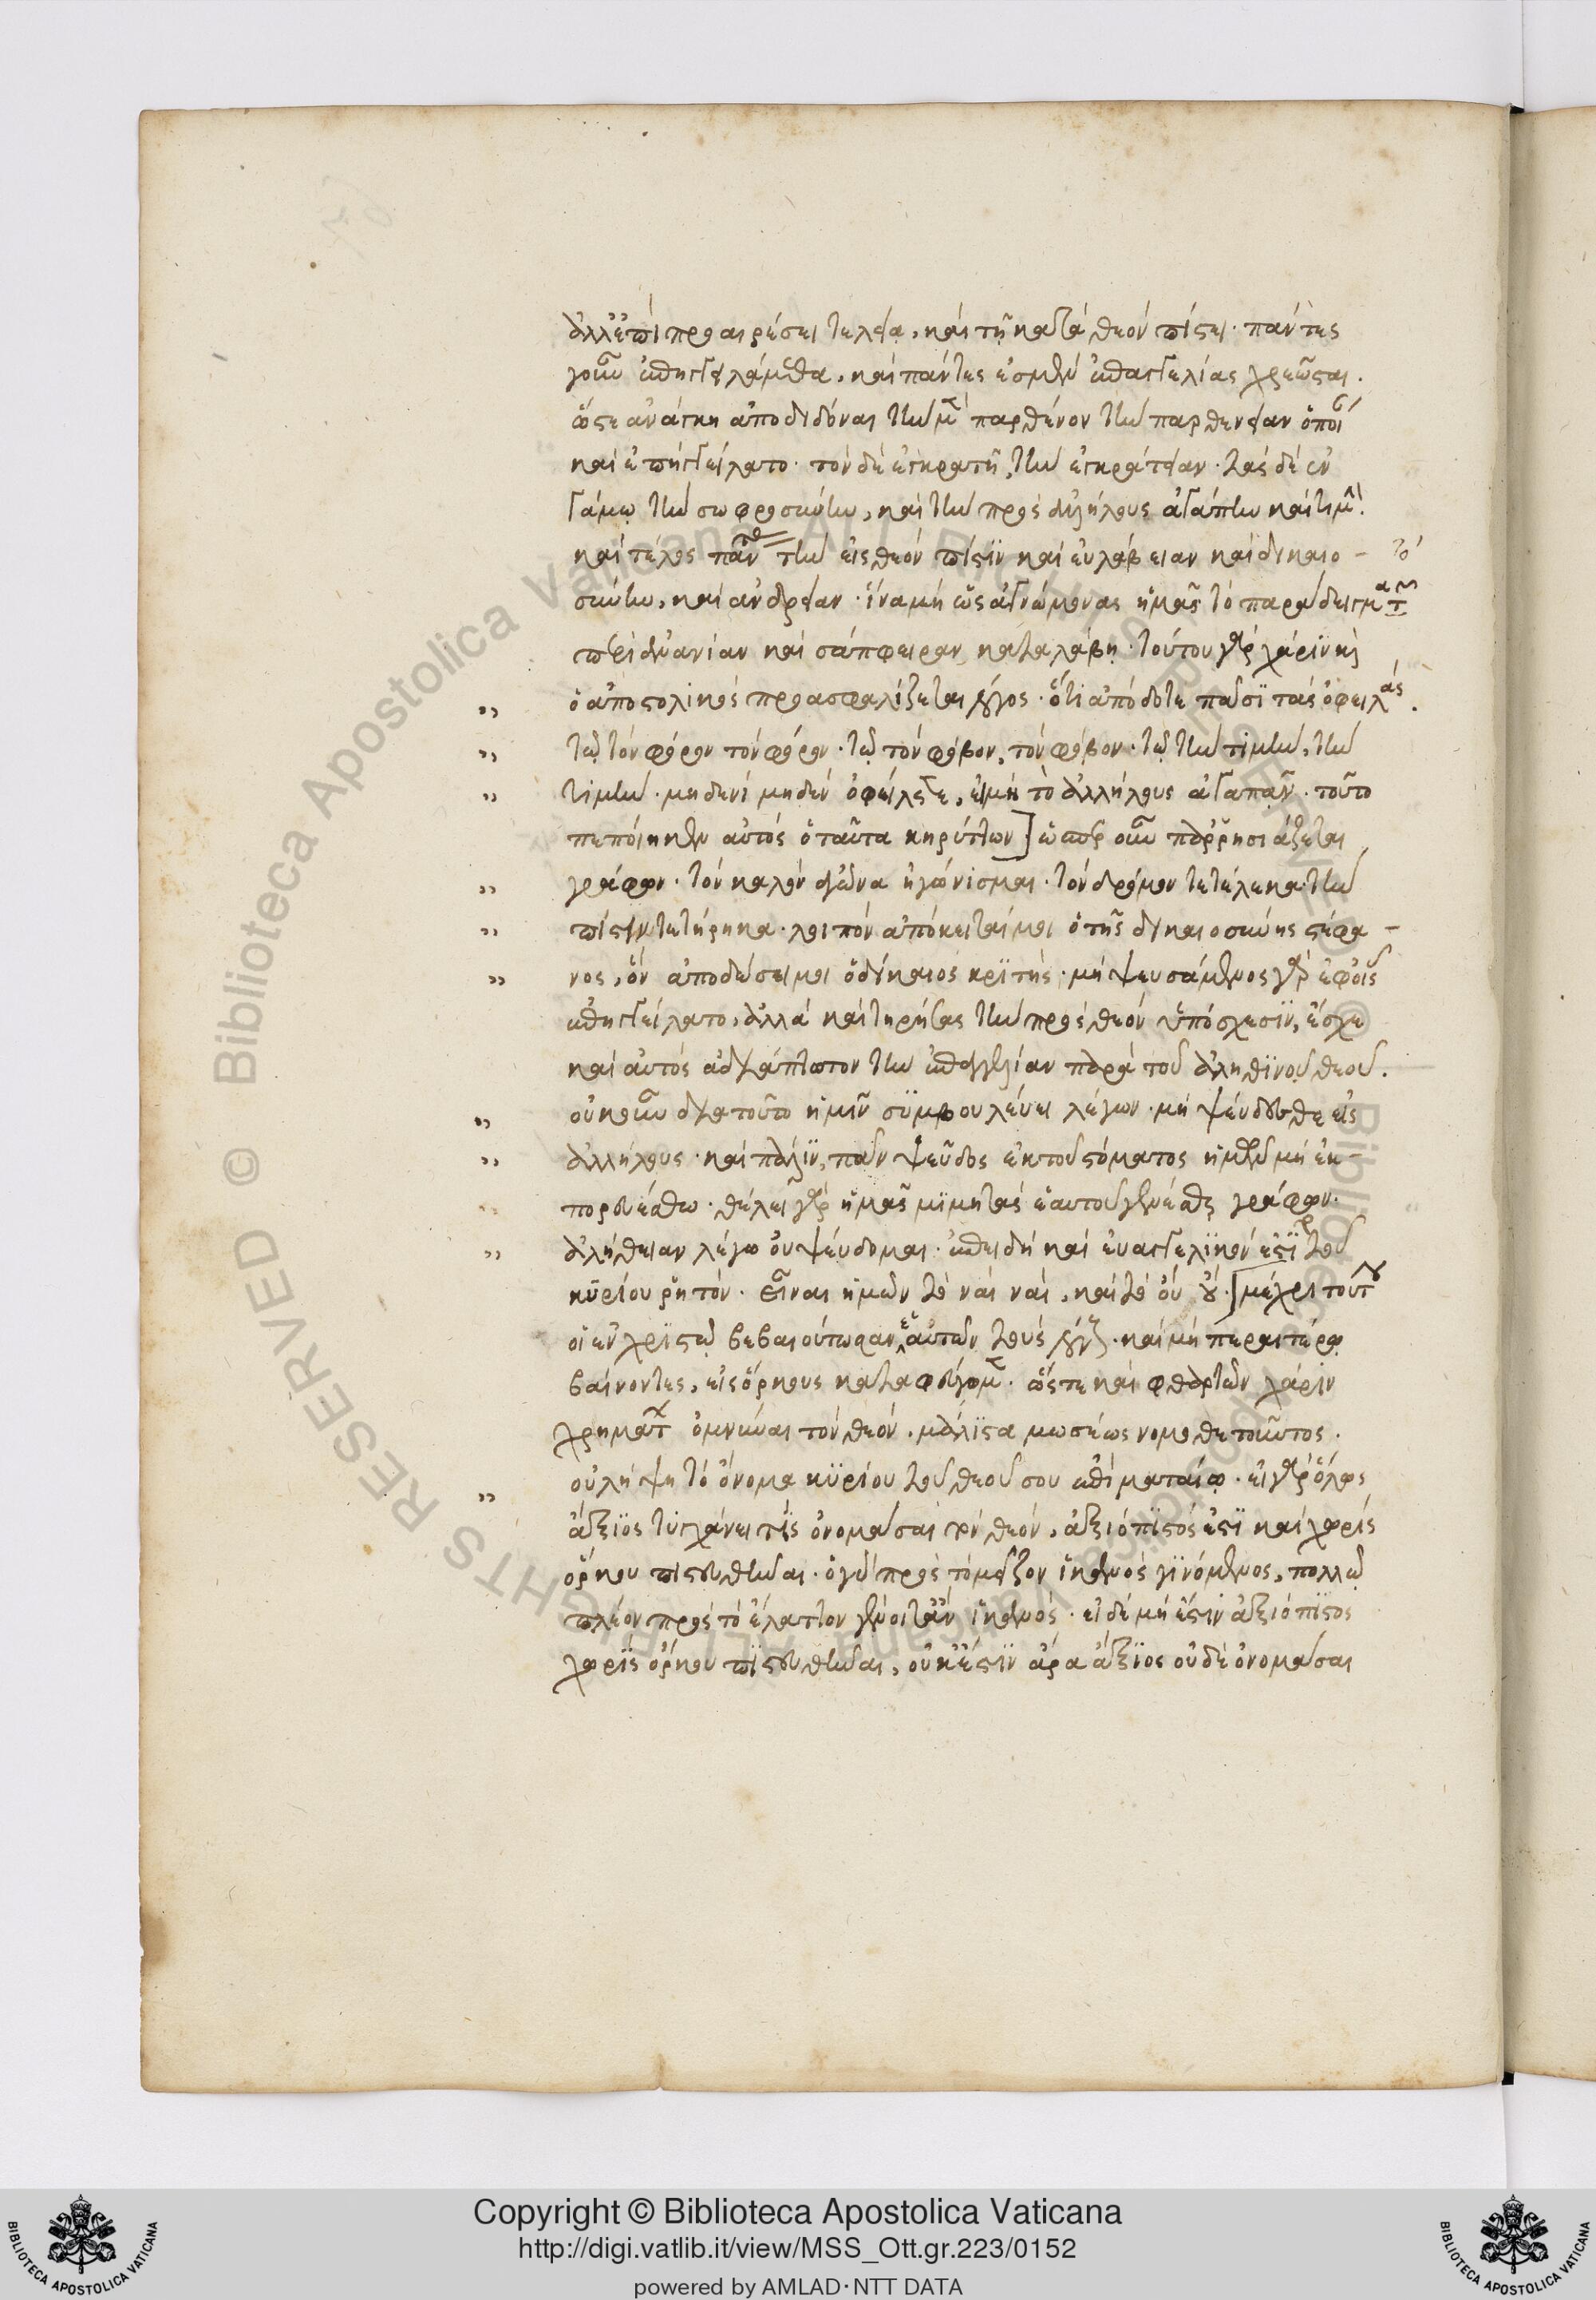 ἀλλ' ἐπὶ προαιρέσει τελεία, καὶ τῇ κατὰ θεὸν πίστει· πάντες
γοῦν ἐπηγγειλάμεθα, καὶ πάντες ἐσμὲν ἐπαγγελίας χρεῶσται.
ὥστε ἀνάγκη ἀποδιδόναι τὴν μὲν παρθένον τὴν παρθενείαν ὅπερ
καὶ ἐπηγγείλατο· τὸν δὲ ἐγκρατῆ, τὴν ἐγκράτειαν· τὰς δὲ ἐν
γάμῳ τὴν σωφροσύνην, καὶ τὴν πρὸς ἀλλήλους ἀγάπην καὶ τιμήν·
καὶ τέλος πάντας τὴν εἰς θεὸν πίστϊν καὶ εὐλάβειαν καὶ δικαιο-
σύνην, καὶ ἀνδρείαν· ἵνα μὴ ὡς ἀγνώμονας ἡμᾶς τὸ παράδειγμα τῶν
περὶ ἀνανίαν καὶ σάπφειραν καταλάβη· τούτου γὰρ χάρϊν καὶ
ὁ ἀποστολικὸς προασφαλίζεται λόγος· ὅτι ἀπόδοτε πᾶσϊ τὰς ὀφειλάς.
τῷ τὸν φόρον τὸν φόρον· τῷ τὸν φόβον, τὸν φόβον· τῷ τὴν τιμὴν, τὴν
τιμήν· μηδενὶ μηδὲν ὀφείλετε, εἰ μὴ τὸ ἀλλήλους ἀγαπᾷν· τοῦτο
πεποίηκεν αὐτὸς ὁ ταῦτα κηρύττων] ὥσπερ οὖν παρρησιάζεται
γράφων· τὸν καλὸν ἀγῶνα ἠγώνισμαι· τὸν δρόμον τετέλεκα· τὴν
πίστιν τετήρηκα· λοιπὸν ἀπόκειταί μοι ὁ τῆς δικαιοσύνης στέφα-
νος, ὃν ἀποδώσει μοι ὁ δίκαιος κρϊτής· μὴ ψευσάμενος γὰρ ἐφ' οἷς
ἐπηγγείλατο, ἀλλὰ καὶ τηρήσας τὴν πρὸς θεὸν ὑπόσχεσϊν, ἔσχε
καὶ αὐτὸς ἀδιάπτωτον τὴν ἐπαγγελίαν παρὰ τοῦ ἀληθϊνοῦ θεοῦ.
οὐκοῦν διὰ τοῦτο ἡμῖν σϋμβουλεύει λέγων· μὴ ψεύδεσθε εἰς
ἀλλήλους· καὶ πάλϊν, πᾶν ψεῦδος ἐκ τοῦ στόματος ἡμῶν μὴ ἐκ-
πορευέσθω· θέλει γὰρ ἡμᾶς μϊμητὰς ἑαυτοῦ γενέσθαι γράφων·
ἀλήθειαν λέγω οὐ ψεύδομαι· ἐπειδὴ καὶ εὐαγγελϊκόν ἐστϊ τοῦ
κϋρίου ῥητόν· εἶναι ἡμῶν τὸ ναὶ ναὶ, καὶ τὸ οὐ οὔ·] μέχρι τούτου
οἱ ἐν χρϊστῷ βεβαιούτωσαν ἑαυτῶν τοὺς λόγους· καὶ μὴ περαιτέρω
βαίνοντες, εἰς ὅρκους καταφεύγωμεν· ὥστε καὶ φθαρτῶν χάρϊν
χρημάτων ὀμνύναι τὸν θεόν· μάλϊστα μωσέως νομοθετοῦντος·
οὐ λήψη τὸ ὄνομα κϋρίου τοῦ θεοῦ σου ἐπὶ ματαίῳ· εἰ γὰρ ὅλως
ἄξϊος τϋγχάνει τϊς ὀνομάσαι τὸν θεὸν, ἀξιόπϊστός ἐστϊ καὶ χωρὶς
ὅρκου πιστευθῆναι· ὁ γὰρ πρὸς τὸ μεῖζον ἱκανὸς γϊνόμενος, πολλῷ
πλέον πρὸς τὸ ἔλαττον γένοιτ' ἂν ἱκανός· εἰ δὲ μὴ ἔστιν ἀξιόπϊστος
χωρὶς ὅρκου πϊστευθῆναι, οὐκ ἔστϊν ἄρα ἄξϊος οὐδὲ ὀνομάσαι
Copyright © Biblioteca Apostolica Vaticana
http://digi.vatlib.it/view/MSS_Ott.gr.223/0152
powered by AMLAD·NTT DATA